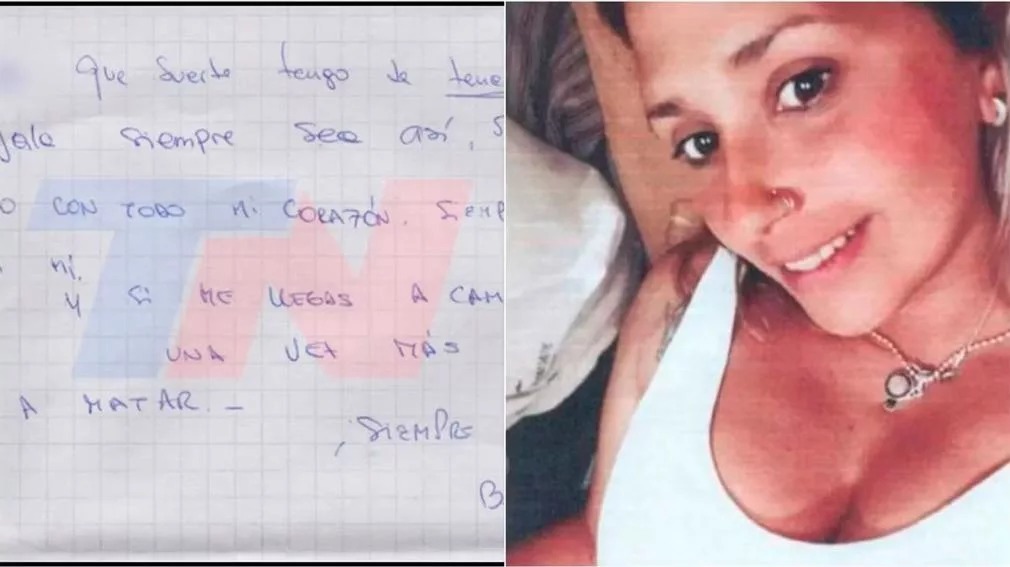 Que suerte tengo de tene
jala siempre sea así, S
O CON TODO MI CORAZÓN. SIEMP
mí.
Y SI ME LLEGAS A CAM
UNA VEZ MÁS
A MATAR. —
, SIEMPRE
B
TN